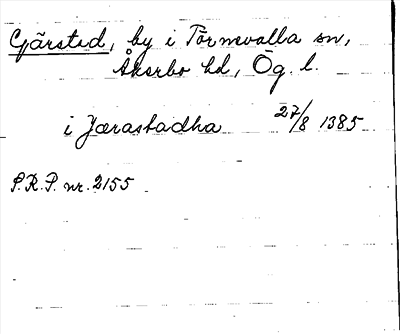 Gärstad, by i Törnevalla sn,
Åkerbo hd, Ög. l.
i Jærastadha 27/8 1385
S.R.P. nr. 2155